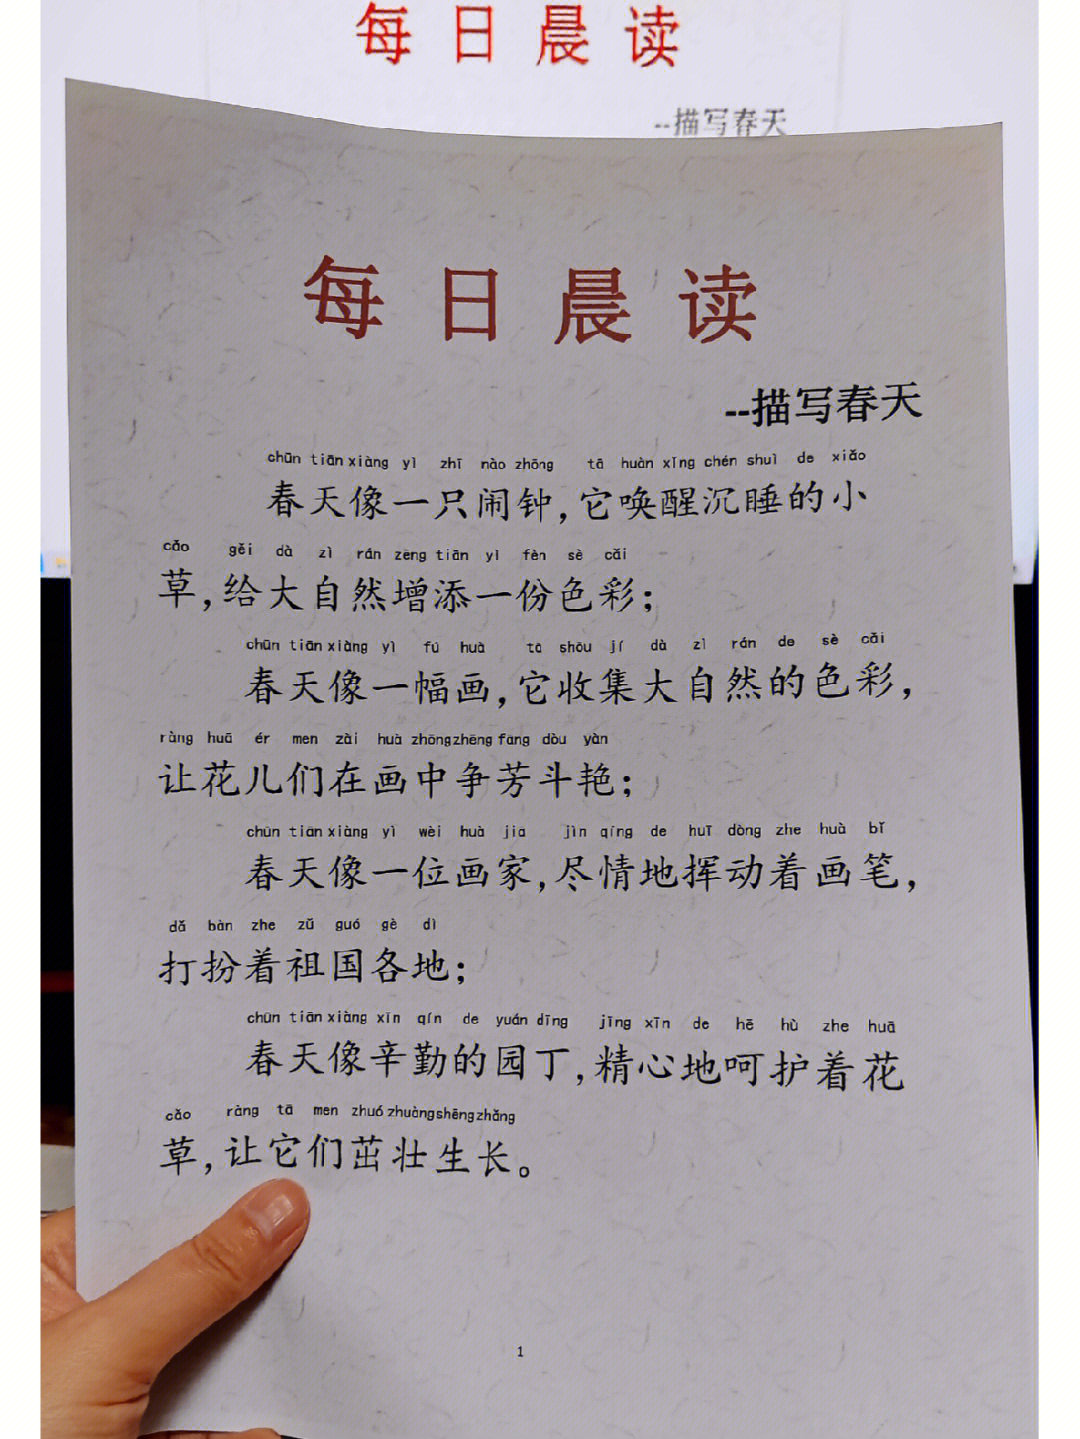 每日晨读
--描写春天
每日晨读
--描写春天
chūn tiān xiàng yì zhī nào zhōng tā huàn xǐng chén shuì de xiǎo
春天像一只闹钟,它唤醒沉睡的小
cǎo gěi dà zì rán zēng tiān yí fèn sè cǎi
草,给大自然增添一份色彩;
chūn tiān xiàng yì fú huà tā shōu jí dà zì rán de sè cǎi
春天像一幅画,它收集大自然的色彩,
ràng huā ér men zài huà zhōng zhēng fāng dòu yàn
让花儿们在画中争芳斗艳;
chūn tiān xiàng yì wèi huà jiā jìn qíng de huī dòng zhe huà bǐ
春天像一位画家,尽情地挥动着画笔,
dǎ bàn zhe zǔ guó gè dì
打扮着祖国各地;
chūn tiān xiàng xīn qín de yuán dīng jīng xīn de hē hù zhe huā
春天像辛勤的园丁,精心地呵护着花
cǎo ràng tā men zhuó zhuàng shēng zhǎng
草,让它们茁壮生长。
1